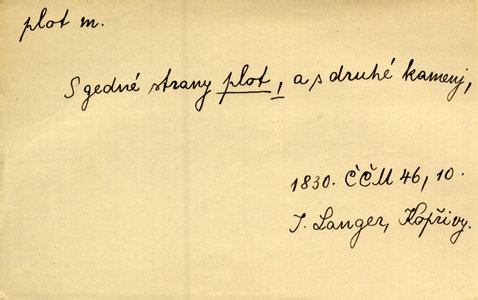 plot m.
S gedné strany plot, a s druhé kamenj,
1830. ČČM 46, 10.
J. Langer, Kopřivy.